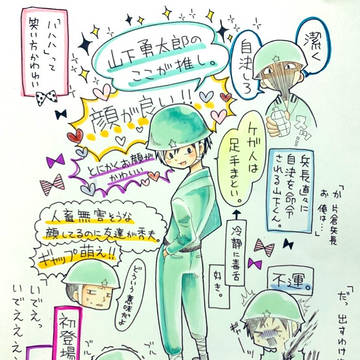 山下勇太郎の
ここが推し。
潔く
自決しろ
「ハハハ」って
笑い方かわいい
顔が良い!!
とにかくお顔が
かわいい
ケガ人は
足手まとい。
冷静に毒舌
好き。
矢長直々に
自決を命令
される山下くん。
「か、片倉矢長
お俺は…」
人畜無害そうな
顔してるのに友達が不夫。
ギャップ萌え!!
どういう
意味だよ
不運。
「だっ、出すわけ
いでえっ
いでえええ
初登場